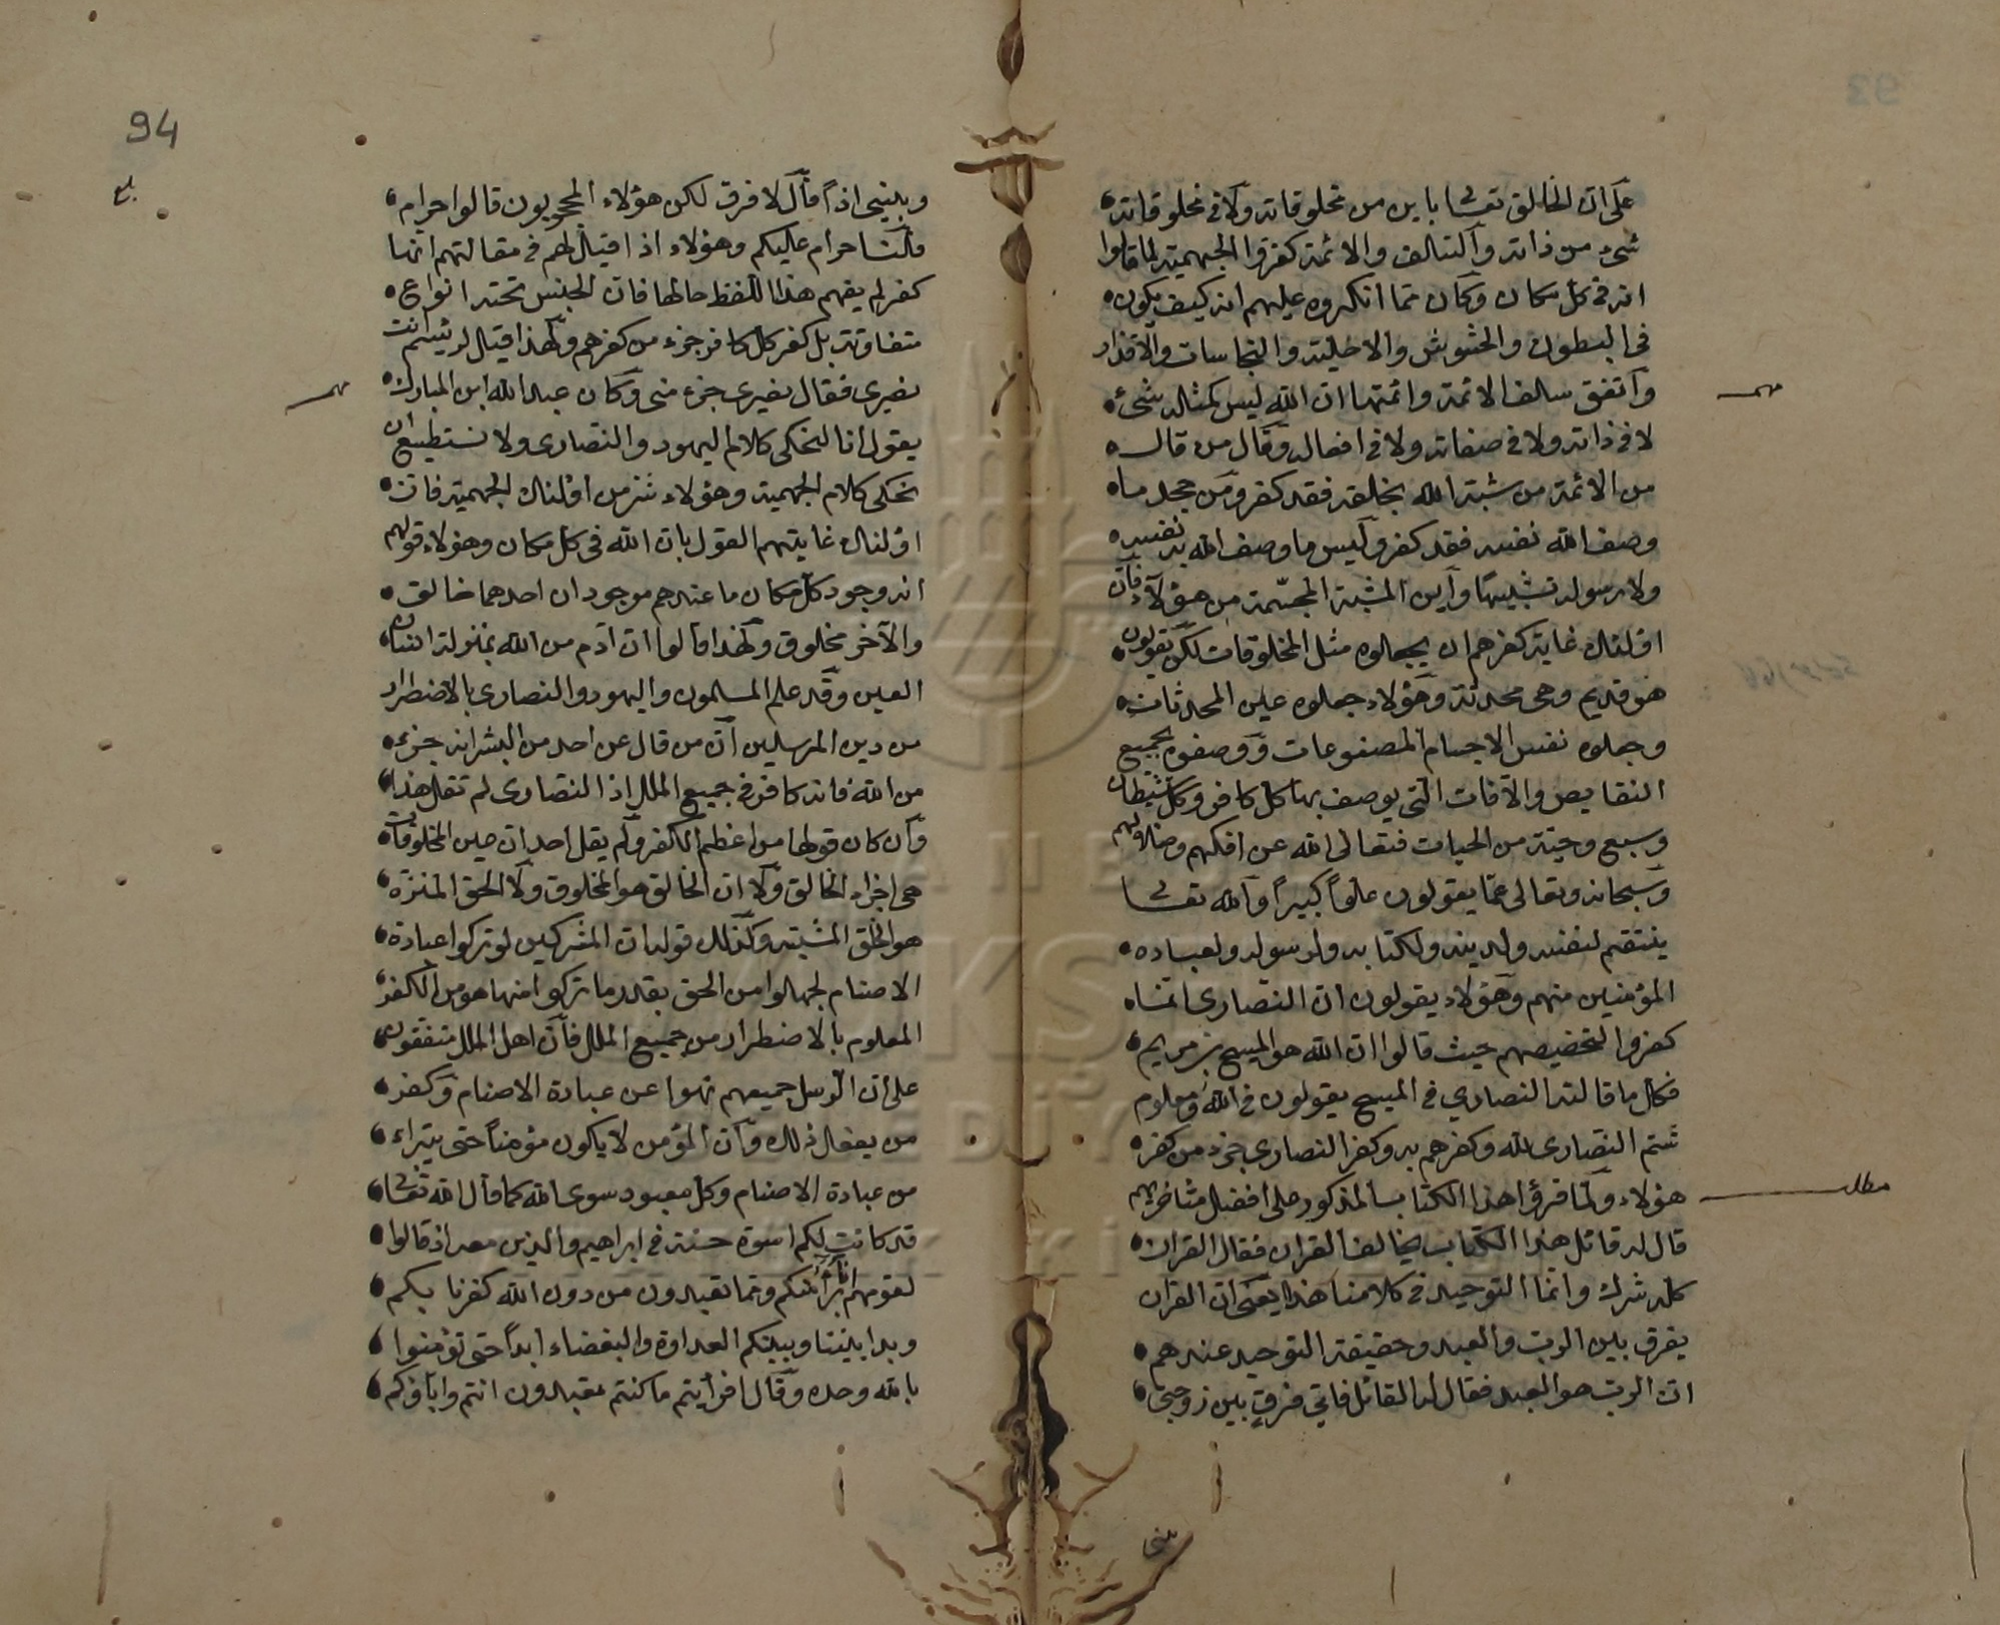 على ان الخالق تعالى باين من مخلوقاته ولا في مخلوقاته
شيء من ذاته والسالف والائمة كفروا الجهمية لما قالوا
انه في كل مكان وكان مما انكروه عليهم انه كيف يكون
في البطون والحشوش والاخلية والنجاسات والاقذار
واتفق سالف الائمة وائمتها ان الله ليس كمثله شيء
لا في ذاته ولا في صفاته ولا في افعاله وقال من قال
من الائمة من شبه الله بخلقه فقد كفر ومن جحد ما
وصف الله نفسه فقد كفر وليس ما وصف الله به نفسه
ولا رسوله تشبيها واين المشبة المجسمة من هؤلاء فان
اولئك غاية كفرهم ان يجعلوه مثل المخلوقات لكن يقولون
هو قديم وهي محدثة وهؤلاء جعلوه عين المحدثات
وجعلوه نفس الاجسام المصنوعات ووصفوه بجميع
النقايص والآفات التي يوصف بها كل كافر وكل شيطان
وسبع وحية من الحيات فتعالى الله عن افكهم وضلالهم
وسبحانه وتعالى عما يقولون علواً كبيراً والله تعالى
ينتقم لنفسه ولدينه ولكتابه ولرسوله ولعباده
المؤمنين منهم وهؤلاء يقولون ان النصارى انما
كفروا لتخصيصهم حيث قالوا ان الله هو المسيح بن مريم
فكل ما قالته النصارى في المسيح يقولون في الله ومعلوم
شتم النصارى لله وكفرهم به وكفر النصارى جزء من كفر
هؤلاء ولما قرؤا هذا الكتاب المذكور على افضل متاخريهم
قال له قائل هذا الكتاب يخالف القران فقال القران
كله شرك وانما التوحيد في كلامنا هذا يعني ان القران
يفرق بين الرب والعبد وحقيقة التوحيد عندهم
ان الرب هو العبد فقال له القائل فاي فرق بين زوجتي
مهم
مطلب
بنتي
94
وبنتي اذاً قال لا فرق لكن هؤلاء المحجوبون قالوا حرام
فقلنا حرام عليكم وهؤلاء اذا قيل لهم في مقالتهم انها
كفر لم يفهم هذا اللفظ حالها فان الجنس تحته انواع
متفاوتة بل كفر كل كافر جزء من كفرهم ولهذا قيل لرئيسهم انت
نصيري فقال نصيري جزء مني وكان عبد الله ابن المبارك
يقول انا لنحكي كلام اليهود والنصارى ولا نستطيع ان
نحكي كلام الجهمية وهؤلاء شر من اولئك الجهمية فان
اولئك غايتهم القول بان الله في كل مكان وهؤلاء قولهم
انه وجود كل مكان ما عندهم موجودان احدهما خالق
والآخر مخلوق ولهذا قالوا ان آدم من الله بمنزلة انسان
العين وقد علم المسلمون واليهود والنصارى بالاضطرار
من دين المرسلين ان من قال عن احد من البشر انه جزء
من الله فانه كافر في جميع الملل اذ النصارى لم تقل هذا
وان كان قولها من اعظم الكفر ولم يقل احد ان عين المخلوقات
هي اجزاء الخالق ولا ان الخالق هو المخلوق ولا الحق المنزه
هو الخلق المشبه وكذلك قوله ان المشركين لو تركوا عبادة
الاصنام لجهلوا من الحق بقدر ما تركوا منها هو من الكفر
المعلوم بالاضطرار من جميع الملل فان اهل الملل متفقون
على ان الرسل جميعهم نهوا عن عبادة الاصنام وكفر
من يفعل ذلك وان المؤمن لا يكون مؤمناً حتى يتبراء
من عبادة الاصنام وكل معبود سوى الله كما قال الله تعالى
قد كانت لكم اسوة حسنة في ابراهيم والذين معه اذ قالوا
لقومهم انا برآؤا منكم ومما تعبدون من دون الله كفرنا بكم
وبدا بيننا وبينكم العداوة والبغضاء ابداً حتى تؤمنوا
بالله وحده وقال افرأيتم ما كنتم تعبدون انتم وآباؤكم